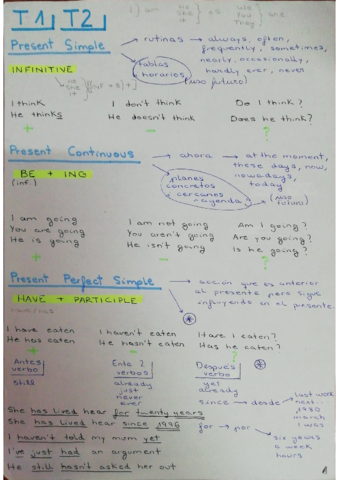 T1, T2
1) I am he she it } is we you they } are
Present Simple
→ rutinas → always, often, frequently, sometimes, nearly, occasionally, hardly ever, never
INFINITIVE
tablas horarios (uso futuro)
he she it } (inf + s)
I think I don't think Do I think?
He thinks He doesn't think Does he think?
+ - ?
Present Continuous
→ ahora → at the moment, these days, now, nowadays, today
BE + ING
(inf.)
planes concretos cercanos agenda (uso futuro)
I am going I am not going Am I going?
You are going You aren't going Are you going?
He is going He isn't going Is he going?
+ - ?
Present Perfect Simple
→ acción que es anterior al presente pero sigue influyendo en el presente
HAVE + PARTICIPLE
have/has
I have eaten I haven't eaten Have I eaten?
He has eaten He hasn't eaten Has he eaten?
+ - ?
Antes verbo
still
Entre 2 verbos
already
just
never
ever
Después verbo
yet
already
since → desde
last week
next
1980
march
I was
for → por
six years
a week
hours
She has lived hear for twenty years
She has lived hear since 1996
I haven't told my mum yet
I've just had an argument
He still hasn't asked her out